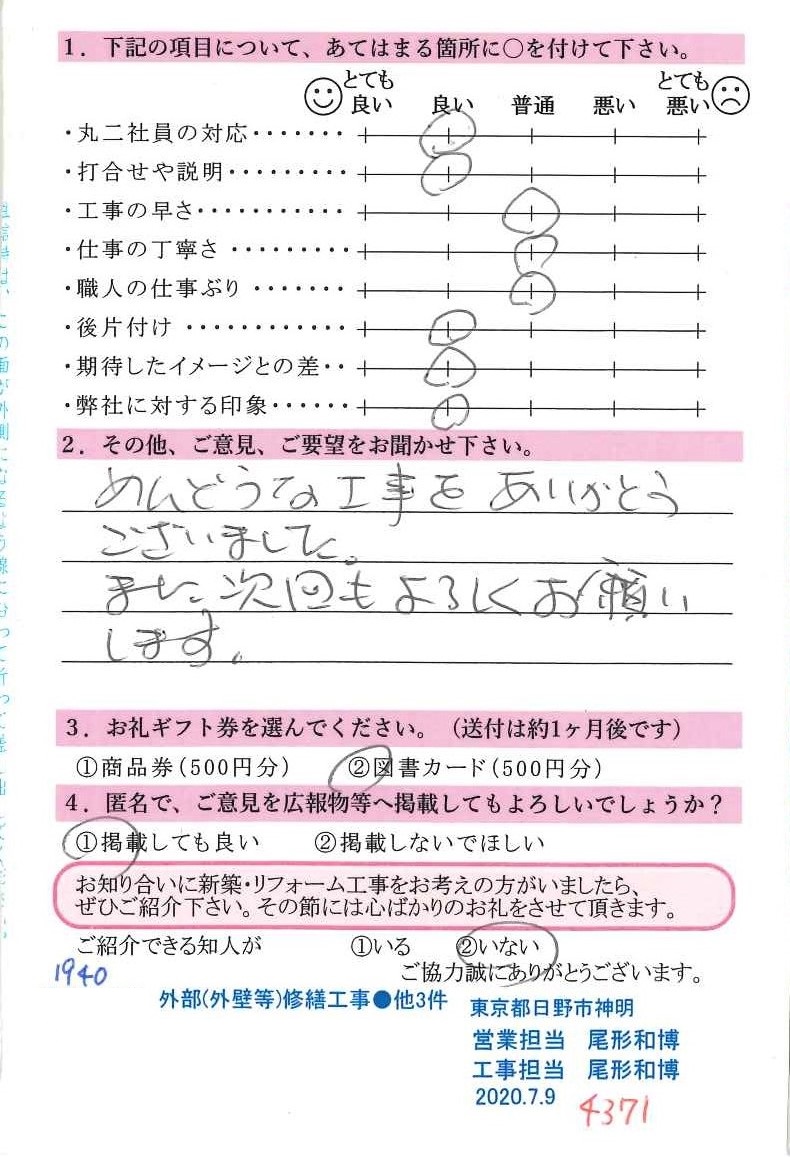 1. 下記の項目について、あてはまる箇所に○を付けて下さい。
とても良い 良い 普通 悪い とても悪い
・丸二社員の対応・・・・・・・
・打合せや説明・・・・・・・・・
・工事の早さ・・・・・・・・・・・
・仕事の丁寧さ ・・・・・・・・・
・職人の仕事ぶり ・・・・・・・
・後片付け ・・・・・・・・・・・・
・期待したイメージとの差・・
・弊社に対する印象・・・・・・
2. その他、ご意見、ご要望をお聞かせ下さい。
めんどうな工事を ありがとう
ございました。
また次回もよろしくお願い
します。
3. お礼ギフト券を選んでください。(送付は約1ヶ月後です)
①商品券(500円分) ②図書カード(500円分)
4. 匿名で、ご意見を広報物等へ掲載してもよろしいでしょうか?
①掲載しても良い ②掲載しないでほしい
お知り合いに新築・リフォーム工事をお考えの方がいましたら、
ぜひご紹介下さい。その節には心ばかりのお礼をさせて頂きます。
ご紹介できる知人が ①いる ②いない
ご協力誠にありがとうございます。
1940
外部(外壁等)修繕工事●他3件
東京都日野市神明
営業担当 尾形和博
工事担当 尾形和博
2020.7.9
4371